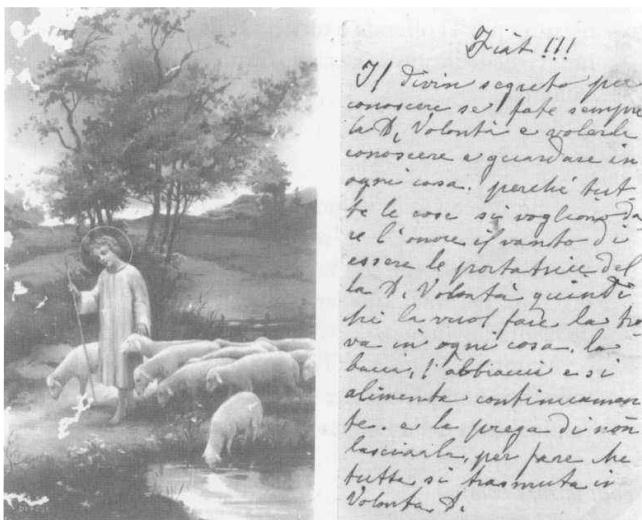 Fiàt !!!
Il divin segreto per
conoscere se fate sempre
la D. Volontà e volerla
conoscere e guardare in
ogni cosa. perché tut
te le cose si vogliono da
re l'onore il vanto di
essere le portatrice del
la D. Volontà quindi
chi la vuol fare la tro
va in ogni cosa. la
bacia, l'abbraccia e si
alimenta continuamen
te. e la prega di non
lasciarla, per fare che
tutta si trasmuta in
Volontà D.